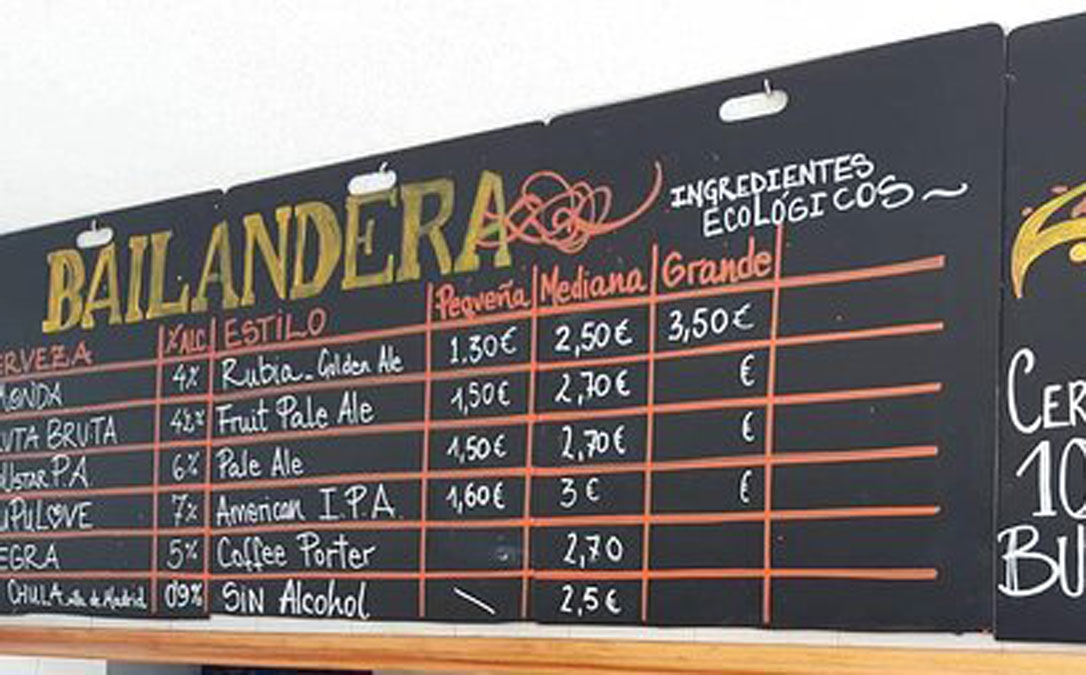 BAILANDERA
INGREDIENTES
ECOLÓGICOS
ERVEZA %ALC ESTILO Pequeña Mediana Grande
MONDA 4% Rubia - Golden Ale 1.30€ 2,50€ 3,50€
UTA BRUTA 4,2% Fruit Pale Ale 1,50€ 2,70€ €
UStar P.A 6% Pale Ale 1,50€ 2,70€ €
UPUL♥VE 7% American I.P.A. 1,60€ 3€ €
EGRA 5% Coffee Porter 2,70
CHULA villa de Madrid 0'9% SIN Alcohol \ 2,5€
CER
10
BU